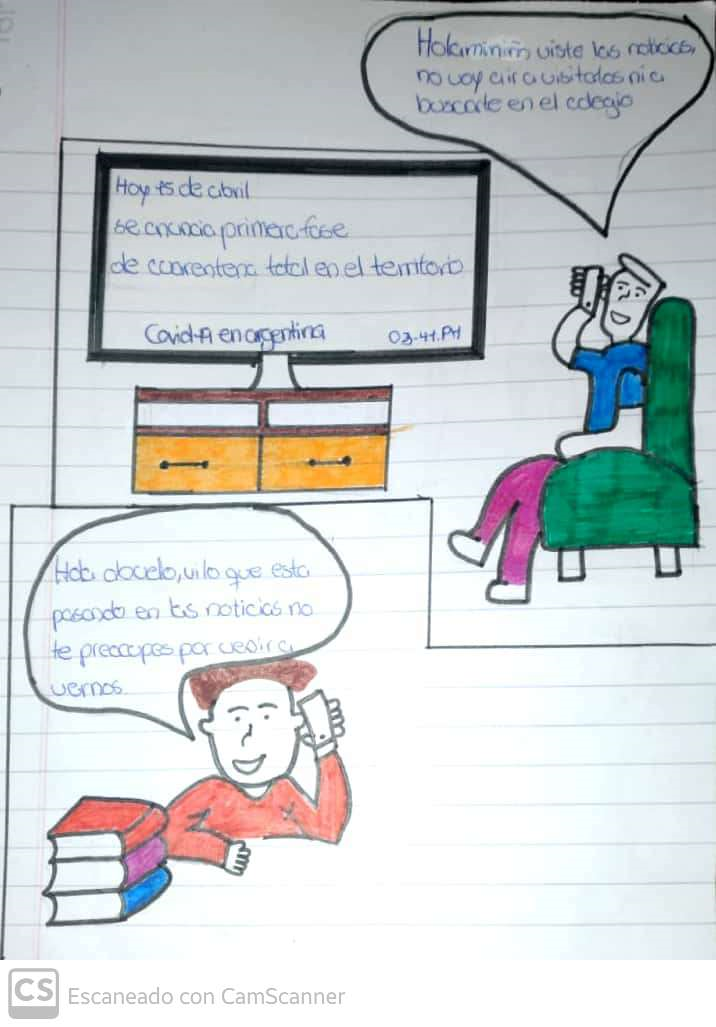 Hola mi niño, viste las noticias,
no voy a ir a visitalos ni a
buscarte en el colegio
Hoy 15 de abril
se anuncia primera fase
de cuarentena total en el territorio
Covid-19 en argentina
03:41.PM
Hola abuelo, vi lo que esta
pasando en las noticias no
te preocupes por venir a
vernos.
CS
Escaneado con CamScanner